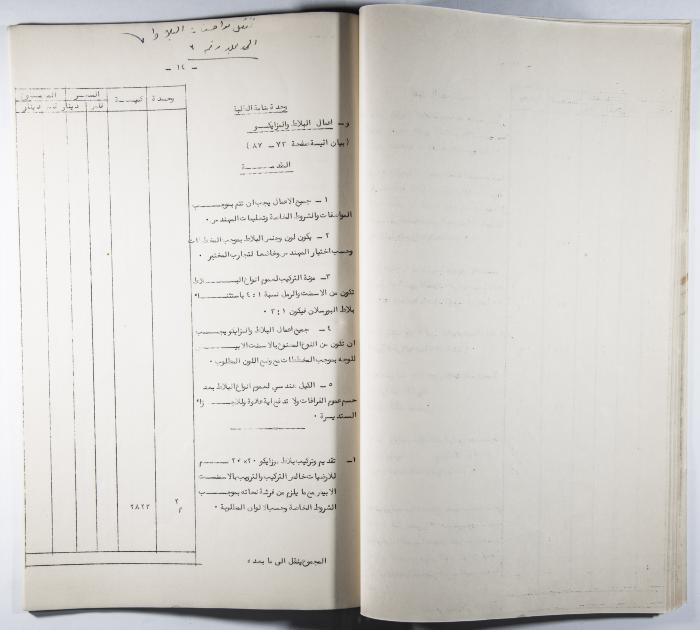 - ١٤ -
وحدة كمية السعر
فلس دينار فلس دينار
وحدة بناية الكلية
و - اعمال البلاط والموزايكو
( بيان اثيسة صفحة ٧٣ - ٨٧ )
المقدمة
١ - جميع الاعمال يجب ان تتم بموجب
المواصفات والشروط الخاصة وتعليمات المهندس ٠
٢ - يكون لون وجنس البلاط بموجب المخططات
وحسب اختيار المهندس وخاضعا لتجارب المختبر ٠
٣ - مونة التركيب لعموم انواع البلاط
تكون من الاسمنت والرمل نسبة ١ : ٤ باستثناء
بلاط البورسلان فيكون ١ : ٣ ٠
٤ - جميع اعمال البلاط والموزايكو يجب
ان تكون من النوع المصنوع بالاسمنت الابيض
للوجه بموجب المخططات مع وضع اللون المطلوب ٠
٥ - الكيل هندسي لعموم انواع البلاط بعد
حسم عموم الفراغات ولا تدفع اية علاوة
المستديرة ٠
١ - تقديم وتركيب بلاط موزايكو ٢٠×٢٠ سم
للارضيات خالص التركيب والترويب بالاسمنت
الابيض مع ما يلزم من فرشة نحاته بموجب
الشروط الخاصة وحسب الالوان المطلوبة ٠ م٢ ٢٨٢٢
المجموع ينقل الى ما بعده